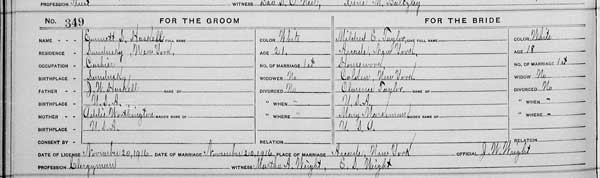 PROFESSION
WITNESS
No. 349 FOR THE GROOM FOR THE BRIDE
NAME Emmett J. Haskell COLOR White Mildred E. Taylor FULL NAME COLOR White
RESIDENCE New York AGE 21 Arcade, New York AGE 18
OCCUPATION Cashier NO. OF MARRIAGE 1st Housework NO. OF MARRIAGE 1st
BIRTHPLACE WIDOWER No Colden, New York WIDOW No
FATHER J. W. Haskell NAME OF DIVORCED No Clarence Taylor NAME OF DIVORCED No
BIRTHPLACE U.S.A. " WHEN U.S.A. " WHEN
MOTHER Addie Worthington MAIDEN NAME OF " WHERE Mary MAIDEN NAME OF " WHERE
BIRTHPLACE U.S.A. U.S.A.
CONSENT BY RELATION RELATION
DATE OF LICENSE November 20, 1916 DATE OF MARRIAGE November 20, 1916 PLACE OF MARRIAGE Arcade, New York OFFICIAL J. W. Wright
PROFESSION Clergyman WITNESS Martha A. Wright, E. S. Wright